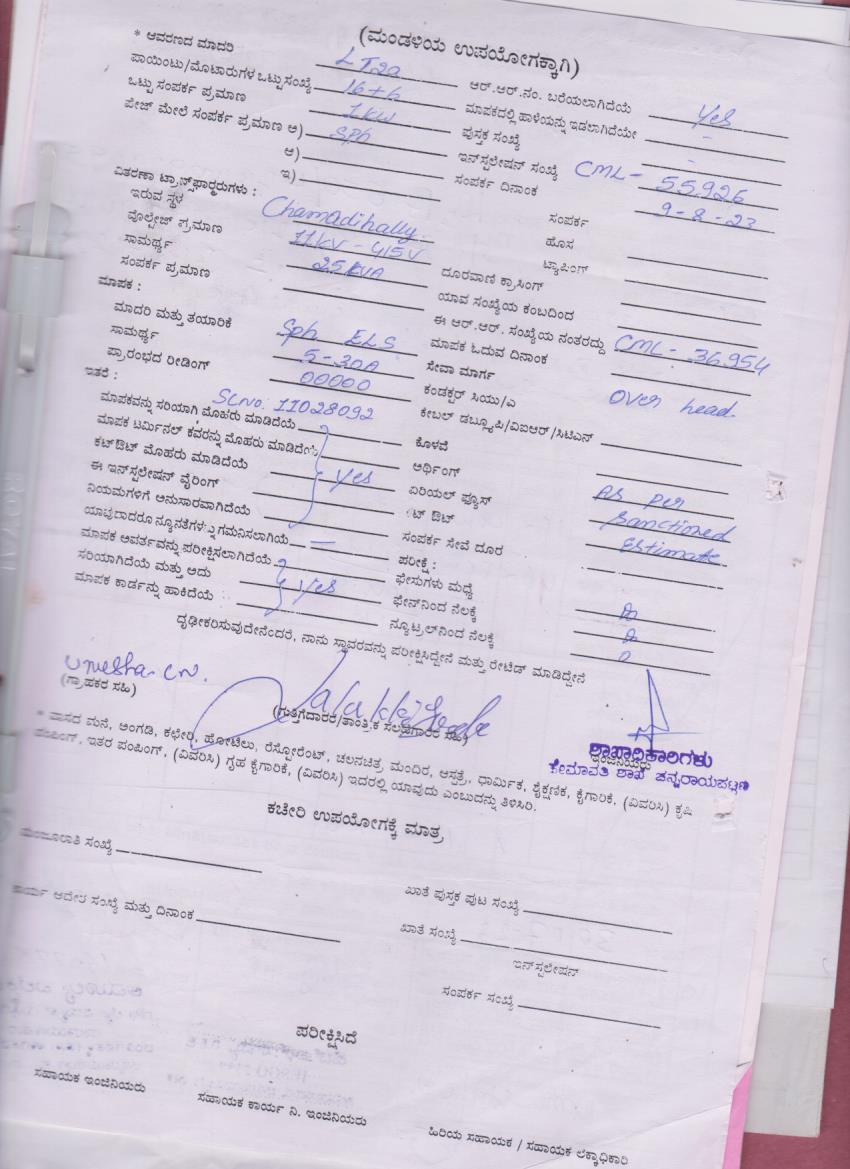 (ಮಂಡಳಿಯ ಉಪಯೋಗಕ್ಕಾಗಿ)
* ಆವರಣದ ಮಾದರಿ LT2a
ಪಾಯಿಂಟು/ಮೊಟಾರುಗಳ ಒಟ್ಟು ಸಂಖ್ಯೆ 16+6
ಒಟ್ಟು ಸಂಪರ್ಕ ಪ್ರಮಾಣ 1kw
ಪೇಜ್ ಮೇಲೆ ಸಂಪರ್ಕ ಪ್ರಮಾಣ ಅ) Sph
ಆ)
ಇ)
ವಿತರಣಾ ಟ್ರಾನ್ಸ್‌ಫಾರ್‍ಮರುಗಳು :
ಇರುವ ಸ್ಥಳ Chamadihally
ವೊಲ್ಟೇಜ್ ಪ್ರಮಾಣ 11kV - 415V
ಸಾಮರ್ಥ್ಯ 25kVA
ಸಂಪರ್ಕ ಪ್ರಮಾಣ
ಮಾಪಕ :
ಮಾದರಿ ಮತ್ತು ತಯಾರಿಕೆ Sph ELS
ಸಾಮರ್ಥ್ಯ 5-30A
ಪ್ರಾರಂಭದ ರೀಡಿಂಗ್ 00000
ಇತರೆ : SLNO: 11028092
ಮಾಪಕವನ್ನು ಸರಿಯಾಗಿ ಮೊಹರು ಮಾಡಿದೆಯೆ
ಮಾಪಕ ಟರ್ಮಿನಲ್ ಕವರನ್ನು ಮೊಹರು ಮಾಡಿದೆಯೆ
ಕಟ್‌ಔಟ್ ಮೊಹರು ಮಾಡಿದೆಯೆ yes
ಈ ಇನ್‌ಸ್ಟಲೇಷನ್ ವೈರಿಂಗ್
ನಿಯಮಗಳಿಗೆ ಅನುಸಾರವಾಗಿದೆಯೆ
ಯಾವುದಾದರೂ ನ್ಯೂನತೆಗಳನ್ನು ಗಮನಿಸಲಾಗಿಯೆ —
ಮಾಪಕ ಅವರ್ತವನ್ನು ಪರೀಕ್ಷಿಸಲಾಗಿದೆಯೆ
ಸರಿಯಾಗಿದೆಯೆ ಮತ್ತು ಅದು yes
ಮಾಪಕ ಕಾರ್ಡನ್ನು ಹಾಕಿದೆಯೆ
ಆರ್.ಆರ್.ನಂ. ಬರೆಯಲಾಗಿದೆಯೆ yes
ಮಾಪಕದಲ್ಲಿ ಹಾಳೆಯನ್ನು ಇಡಲಾಗಿದೆಯೇ -
ಪುಸ್ತಕ ಸಂಖ್ಯೆ -
ಇನ್‌ಸ್ಟಲೇಷನ್ ಸಂಖ್ಯೆ CML - 55926
ಸಂಪರ್ಕ ದಿನಾಂಕ 9-8-23
ಸಂಪರ್ಕ
ಹೊಸ
ಟ್ಯಾಪಿಂಗ್
ದೂರವಾಣಿ ಕ್ರಾಸಿಂಗ್
ಯಾವ ಸಂಖ್ಯೆಯ ಕಂಬದಿಂದ
ಈ ಆರ್.ಆರ್. ಸಂಖ್ಯೆಯ ನಂತರದ್ದು CML - 36954
ಮಾಪಕ ಓದುವ ದಿನಾಂಕ
ಸೇವಾ ಮಾರ್ಗ Over head
ಕಂಡಕ್ಟರ್ ಸಿಯು/ಎ
ಕೇಬಲ್ ಡಬ್ಲ್ಯೂಪಿ/ವಿಐಆರ್/ಸಿಟಿಎಸ್
ಕೊಳವೆ
ಅರ್ಥಿಂಗ್
ಏರಿಯಲ್ ಫ್ಯೂಸ್ As per
ಟ್ ಔಟ್ Sanctioned
ಸಂಪರ್ಕ ಸೇವೆ ದೂರ Estimate
ಪರೀಕ್ಷೆ :
ಫೇಸುಗಳು ಮಧ್ಯೆ
ಫೇಸ್‌ನಿಂದ ನೆಲಕ್ಕೆ
ನ್ಯೂಟ್ರಲ್‌ನಿಂದ ನೆಲಕ್ಕೆ
ದೃಢೀಕರಿಸುವುದೇನೆಂದರೆ, ನಾನು ಸ್ಥಾವರವನ್ನು ಪರೀಕ್ಷಿಸಿದ್ದೇನೆ ಮತ್ತು ರೇಟಿಡ್ ಮಾಡಿದ್ದೇನೆ
Umesha.C.N.
(ಗ್ರಾಹಕರ ಸಹಿ)
(ಗುತ್ತಿಗೆದಾರರ/ತಾಂತ್ರಿಕ ಸಲಹೆಗಾರರ ಸಹಿ)
ಶಾಖಾಧಿಕಾರಿಗಳು
ಇಂಜಿನಿಯರು
ಹೇಮಾವತಿ ಶಾಖೆ ಚನ್ನರಾಯಪಟ್ಟಣ
* ವಾಸದ ಮನೆ, ಅಂಗಡಿ, ಕಛೇರಿ, ಹೋಟೆಲು, ರೆಸ್ಟೋರೆಂಟ್, ಚಲನಚಿತ್ರ ಮಂದಿರ, ಆಸ್ಪತ್ರೆ, ಧಾರ್ಮಿಕ, ಶೈಕ್ಷಣಿಕ, ಕೈಗಾರಿಕೆ, (ವಿವರಿಸಿ) ಕೃಷಿ
ಪಂಪಿಂಗ್, ಇತರ ಪಂಪಿಂಗ್, (ವಿವರಿಸಿ) ಗೃಹ ಕೈಗಾರಿಕೆ, (ವಿವರಿಸಿ) ಇದರಲ್ಲಿ ಯಾವುದು ಎಂಬುದನ್ನು ತಿಳಿಸಿರಿ.
ಕಚೇರಿ ಉಪಯೋಗಕ್ಕೆ ಮಾತ್ರ
ಮಂಜೂರಾತಿ ಸಂಖ್ಯೆ
ಕಾರ್ಯ ಆದೇಶ ಸಂಖ್ಯೆ ಮತ್ತು ದಿನಾಂಕ
ಖಾತೆ ಪುಸ್ತಕ ಪುಟ ಸಂಖ್ಯೆ
ಖಾತೆ ಸಂಖ್ಯೆ
ಇನ್‌ಸ್ಟಲೇಷನ್
ಸಂಪರ್ಕ ಸಂಖ್ಯೆ
ಪರೀಕ್ಷಿಸಿದೆ
ಸಹಾಯಕ ಇಂಜಿನಿಯರು
ಸಹಾಯಕ ಕಾರ್ಯ ನಿ. ಇಂಜಿನಿಯರು
ಹಿರಿಯ ಸಹಾಯಕ / ಸಹಾಯಕ ಲೆಕ್ಕಾಧಿಕಾರಿ